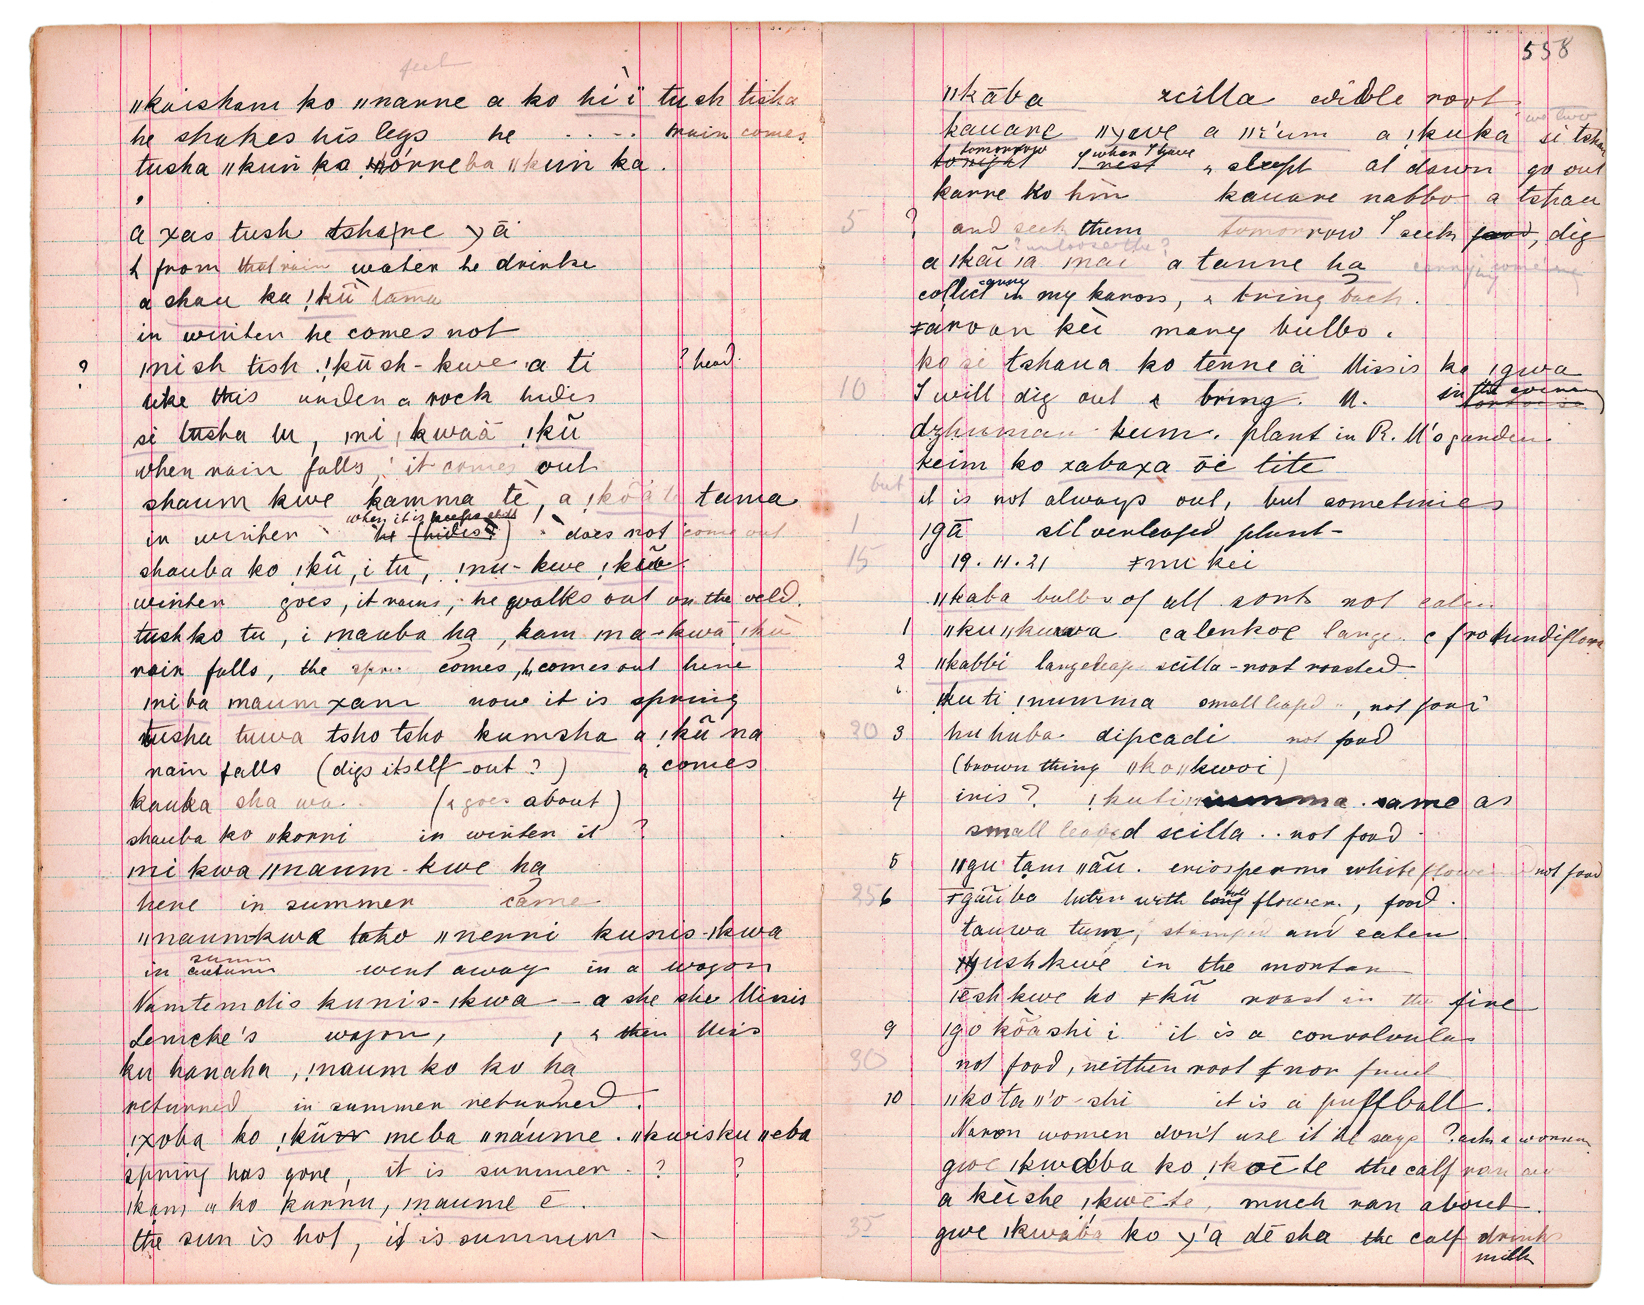 feet
〃kaisham ko 〃nanne a ko hi ï tush tisha
he shakes his legs he .... rain comes
tusha 〃kuñ ka norneba 〃kuñ ka.
a xas tush tshane ɣā
& from that rain water he drinks
a shau ka ǃkũ tama
in winter he comes not
? ǀmi sh tish ǃkūsh-kwe a ti ? head.
like this under a rock hides
si tusha tu, ǀni ǀkwaā ǃkũ
when rain falls, it comes out
shaum kwe kamma tē, a ǃkōǎte tama
when it is keeps cold
in winter he (hides) . does not come out
shauba ko ǃkũ, i tū, ǃnu-kwe ǃkũ
winter goes, it rains, he walks out on the veld.
tush ko tu, i mauba ha, kam ma-kwa ǃkũ
rain falls, the spr comes, & comes out here
ǀni ba maum xam now it is spring
tusha tuwa tsho tsho kumsha a ǃkũ na
rain falls (digs itself out?) & comes
kauka sha wa (& goes about)
shauba ko 〃korni in winter it ?
mi kwa 〃naum-kwe ha
here in summer came
〃naumkwa toho 〃nerri kunis-ǀkwa
summ
in autumn went away in a wagon
Namtemdis kunis-ǀkwa - a she she Missis
Lemcke's wagon, , & then Miss
ku hanaha, ǃnaum ko ko ha
returned in summer returned.
ǃxoba ko ǃkũ meba 〃náume. 〃kwisku 〃eba
spring has gone, it is summer. ? ?
ǀkam a ko kurru, ǀnaume ē.
the sun is hot, it is summer -
558
〃kāba scilla edible root
kauare 〃ɣeve a 〃ɛ'um a ǃkuka si tshau
tomorrow & when I have
tonight I rest & slept at dawn go out
karre ko him kauare nabbo a tshau
5 ? and seek them tomorrow I seek food, dig
? unloose the ?
a ǀkāi ǀa mai a tanne ha carrying
going
collect in my kaross, & bring back.
ǂaroan kei many bulbs.
ko si tshana ko tenne ä Missis ka ǀgwa
10 I will dig out & bring. M. in the evening
dzhuman kum. plant in R. M's garden.
keim ko xabaxa ōë tite
but it is not always out, but sometimes
1 ǀgā silverleafed plant-
15 19.11.21 ǂmi kei
〃kaba bulbs of all sorts not eaten
1 〃ku〃kuwa calenkoe large cf rotundiflora
2 〃kabbi largeleaf scilla-root roasted
ǃku ti ǃnumma small leafed, not food
20 3 huhuba dipcadi not food
(brown thing 〃ko〃kwoi)
4 iris? ǃkutinumma same as
small leafed scilla .. not food
5 〃gu tam 〃āu. eriosperms white flower not food
25 6 ǂgāuba tuber with long flower, food.
tauwa tum, stamped and eaten
ɣushkwe in the mortar
ǀēsh kwe ko ǂkũ roast in the fire
9 ǀgo kōashi i it is a convolvulus
30 not food, neither root nor fruit
10 〃ko ta 〃'o shi it is a puffball.
Naron women don't use it he says ? ask a woman
gwe ǀkwaba ko ǃkoē te the calf ran a
a kei she ǃkwēte, much ran about.
35 gwe ǀkwaba ko ɣ'a dē sha the calf drinks
milk